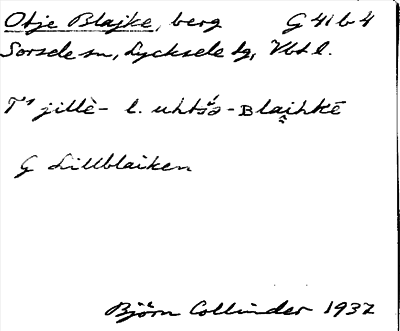 Otje Blajke, berg G 4i b 4
Sorsele sn, Lycksele lg, Vbt l.
T' jillè- l. uhtsə̀- Blaihkē
G Lillblaiken
Björn Collinder 1937